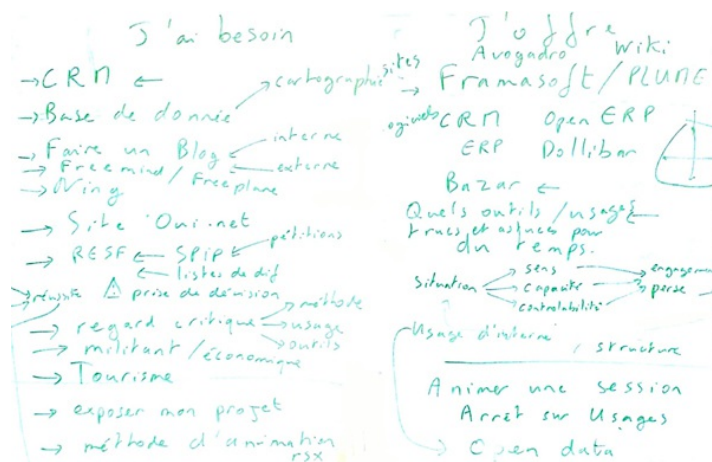 J'ai besoin
→ CRM ←
→ Base de donnée → cartographie
→ Faire un Blog ← interne
← externe
→ Freemind / Freeplane
→ Ning
→ Site Oui.net
→ RESF ← SPIP ← pétitions
← listes de dif
→ réussite ⚠ prise de décision
→ regard critique → méthode
→ usage
→ outils
→ militant / économique
→ Tourisme
→ exposer mon projet
→ méthode d'animation
rsx
J'offre
Avogadro Wiki
sites
→ Framasoft / PLUME
CRM Open ERP
ERP Dollibar
Bazar ←
Quels outils / usages ←
trucs et astuces pour
du temps.
situation → sens → engagement
→ capacité → perse
→ controlabilité
Usage d'interne
/ structure
Animer une session
Arrêt sur Usages
→ Open data